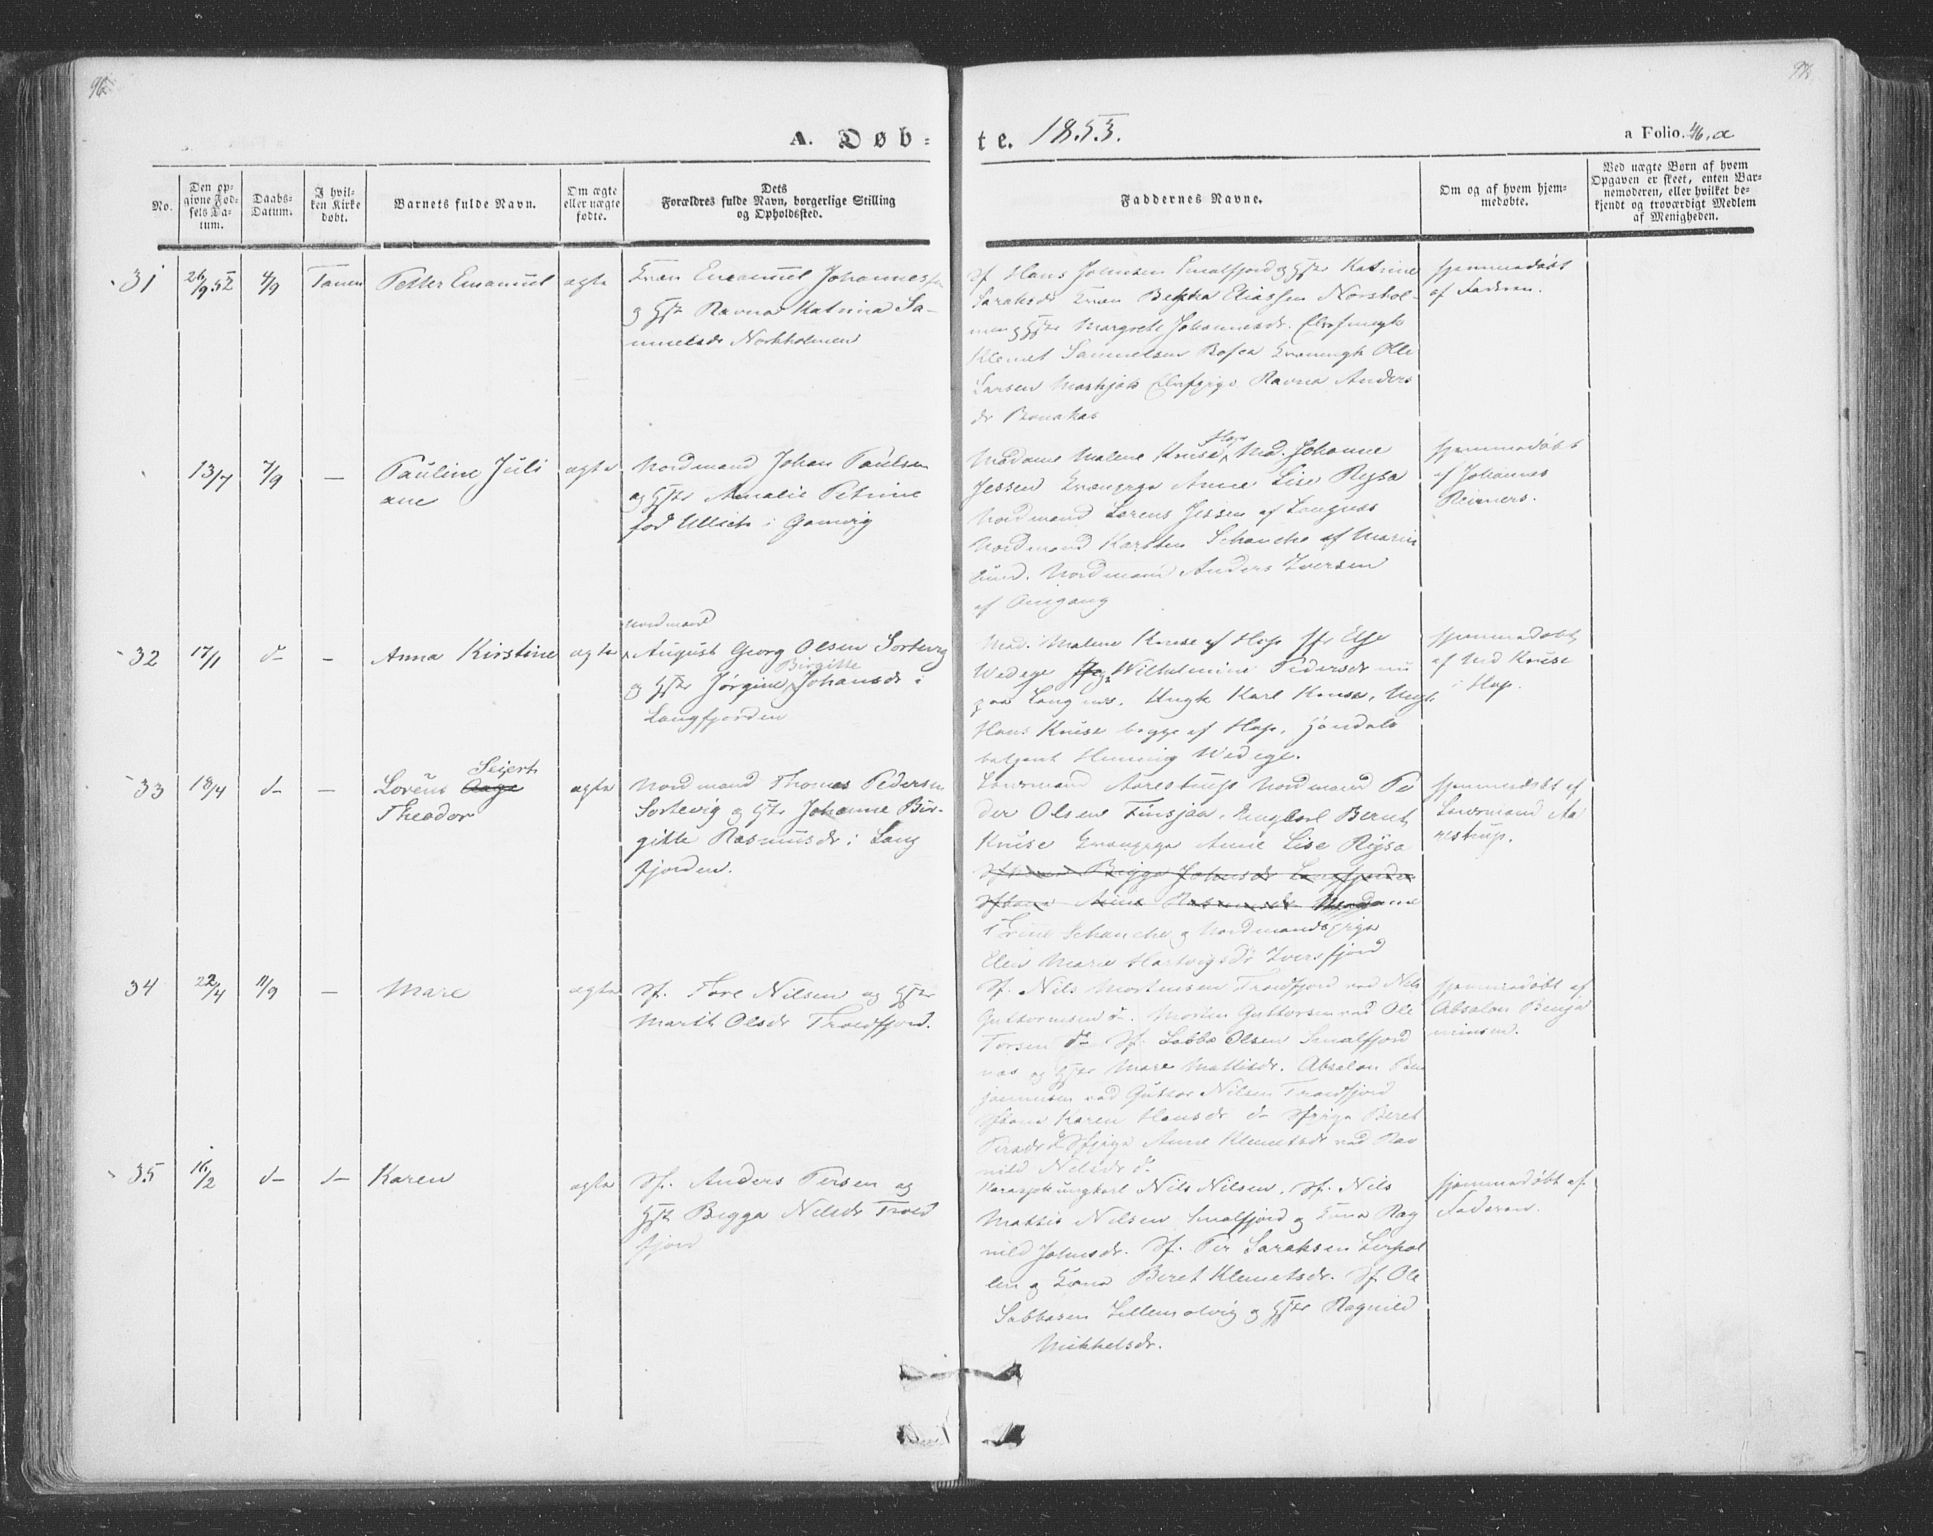 96
A. Døb-
te. 1853.
a Folio. 46.a
No.
Den op-
givne Fød-
sels Da-
tum.
Daabs-
Datum.
I hvil-
ken Kirke
døbt.
Barnets fulde Navn.
Om ægte
eller uægte
fødte.
Dets
Forældres fulde Navn, borgerlige Stilling
og Opholdssted.
Faddernes Navne.
Om og af hvem hjem-
medøbte.
Ved uægte Børn af hvem
Opgaven er skeet, enten Bar-
nemoderen, eller hvilket be-
kjendt og troværdigt Medlem
af Menigheden.
31 26/9 52 4/9 Tanen Petter Emanuel ægte
Kvæn Emanuel Johannessen
og Hstr Ravna Katrina Sa-
muelsdr Norkholmen
Sf. Hans Johnsen Smalfjord og Hstr Katrine
Saraksdr Kvæn Bekka Eliassen Norskol-
men og Hstr Margrete Johannesdr.
Klemet Samuelsen Ole
Larsen Maskjok Ravna Anders
dr Bonakas
hjemmedøbt
af Faderen.
13/7 7/9 — Pauline Juli
ane
ægte
Nordmand Johan Paulsen
og Hstr Amalie Petrine
fød Ullich i Gamvig
Madame Malene Kruse Hop, Mad. Johanne
Jessen Kvænpige Anne Lise Rysa
Nordmand Lorens Jessen af Langnæs
Nordmand Karsten Schanche af Marie
lund. Nordmand Anders Iversen
af Omgang
hjemmedøbt
af Johannes
Reimers.
32 17/1 d— — Anna Kirstine ægte
Nordmand
August Georg Olsen Sortevig
og Hstr Jørgine Birgitte Johansdr i
Langfjorden
Mad. Malene Kruse af Hop Else
Wedege Wilhelmine Pedersdr nu
paa Langnæs. Ungk Karl Kruse, Ungk
Hans Kruse begge af Hop, Handels
betjent Henning Wedege.
hjemmedøbt
af Md Kruse
i Hop.
33 18/4 d— — Lorens Sejert
Theodor
ægte
Nordmand Thomas Pedersen
Sortevig og Hstr Johanne Bir-
gitte Rasmusdr i Lang
fjorden.
Lensmand Aarestrup Nordmand Pe
der Olsen Finsjaa, Ungkarl Bernt
Kruse Kvænpige Anne Lise Rysa
Bigga Johnsdr Langfjorden
Anne Rasmusdr Madame
Trine Schanche og Nordmandspige
Elen Marie Hartvigsdr Iversfjord
hjemmedøbt af
Lensmand Aa
restrup.
34 22/4 11/9 — Mare ægte
Sf. Tore Nilsen og Hstr
Marit Olsdr Troldfjord.
Sf. Nils Mortensen Troldfjord ved Nils
Guttormsen d— Morten Guttormsen ved Ole
Torsen d— Sf. Sabba Olsen Smalfjord
næs og Hstr Mare Mattisdr. Absalon Ben
jaminsen ved Guttor Nilsen Troldfjord
Karen Hansdr d— Sfpige Beret
Persdr d— Sfpige Anne Klemetsdr ved Rav
nild Nilsdr d—
hjemmedøbt af
Absalon Benja
minsen.
35 16/2 d— d— Karen ægte
Sf. Anders Persen og
Hstr Bigga Nilsdr Trold
fjord
Karasjok ungkarl Nils Nilsen, Sf. Nils
Mattis Nilsen Smalfjord og Kona Rag
nild Johnsdr. Sf. Per Saraksen Leirpol
len og Kona Beret Klemetsdr. Sf. Ole
Sabbasen Lillemolvig og Hstr Ragnild
Mikkelsdr.
hjemmedøbt af
Faderen.